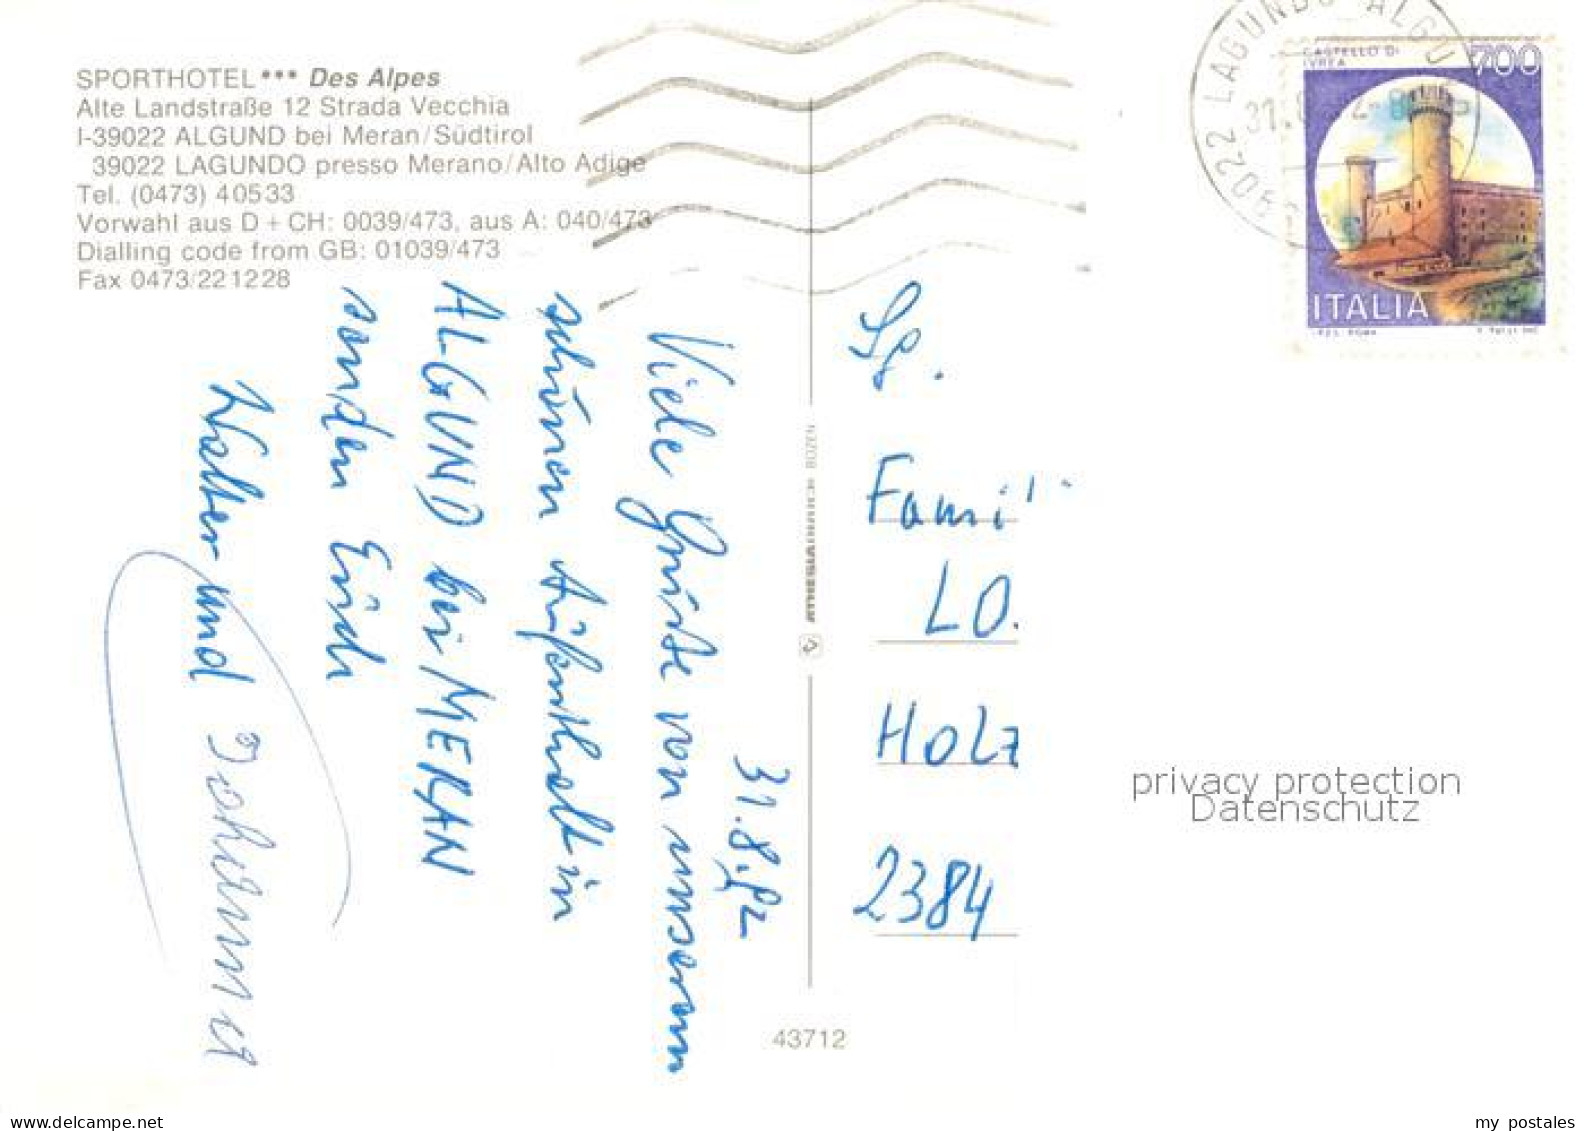 SPORTHOTEL*** Des Alpes
Alte Landstraße 12 Strada Vecchia
I-39022 ALGUND bei Meran/Südtirol
39022 LAGUNDO presso Merano/Alto Adige
Tel. (0473) 40533
Vorwahl aus D + CH: 0039/473, aus A: 040/473
Dialling code from GB: 01039/473
Fax 0473/221228
31.8.92
Viele Grüße von unserem
schönen Aufenthalt in
ALGUND bei MERAN
senden Euch
Walter und Johanna
BOZEN
43712
39022 LAGUNDO ALGU
CASTELLO DI
IVREA
700
ITALIA
I.P.Z.S. ROMA
Fg.
Famil
LO.
HOLZ
2384
privacy protection
Datenschutz
www.delcampe.net
my_postales